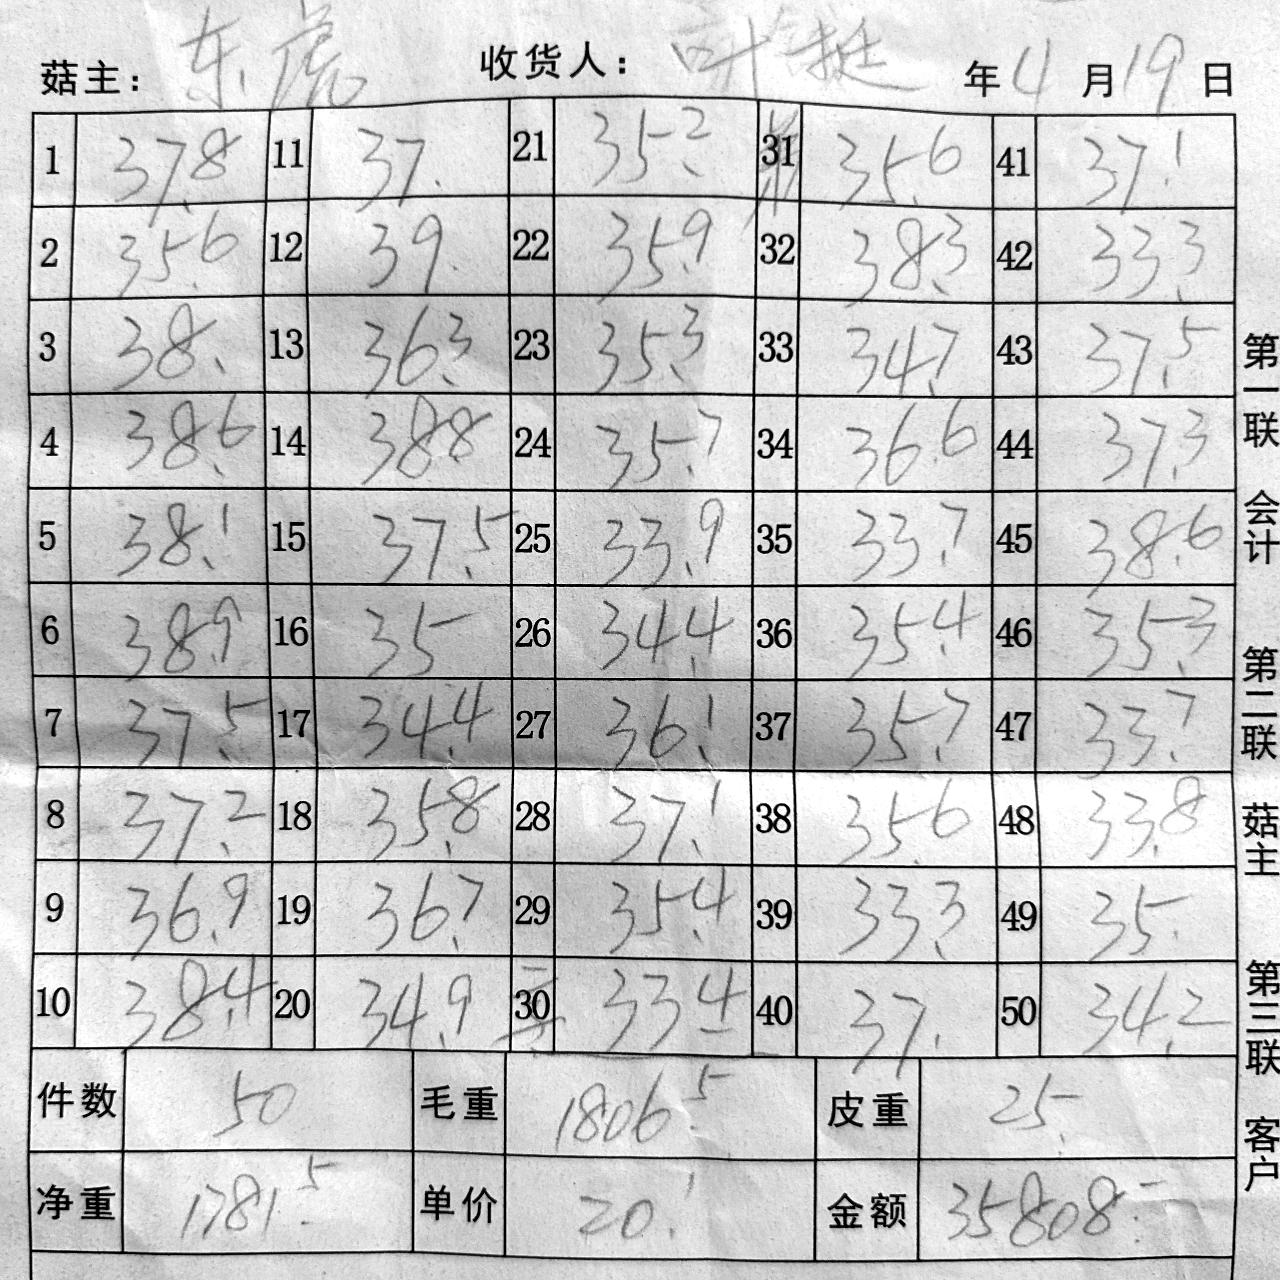 菇主：东虎 收货人：叶挺 年4月19日
1 37.8 11 37. 21 35.2 31 35.6 41 37.1
2 35.6 12 39. 22 35.9 32 38.3 42 33.3
3 38. 13 36.3 23 35.3 33 34.7 43 37.5
4 38.6 14 38.8 24 35.7 34 36.6 44 37.3
5 38.1 15 37.5 25 33.9 35 33.7 45 38.6
6 38.9 16 35 26 34.4 36 35.4 46 35.3
7 37.5 17 34.4 27 36.1 37 35.7 47 33.7
8 37.2 18 35.8 28 37.1 38 35.6 48 33.8
9 36.9 19 36.7 29 35.4 39 33.3 49 35.
10 38.4 20 34.9 30 33.4 40 37. 50 34.2
件数 50 毛重 1806.5 皮重 25.
净重 1781.5 单价 20.1 金额 35808.-
第一联 会计 第二联 菇主 第三联 客户